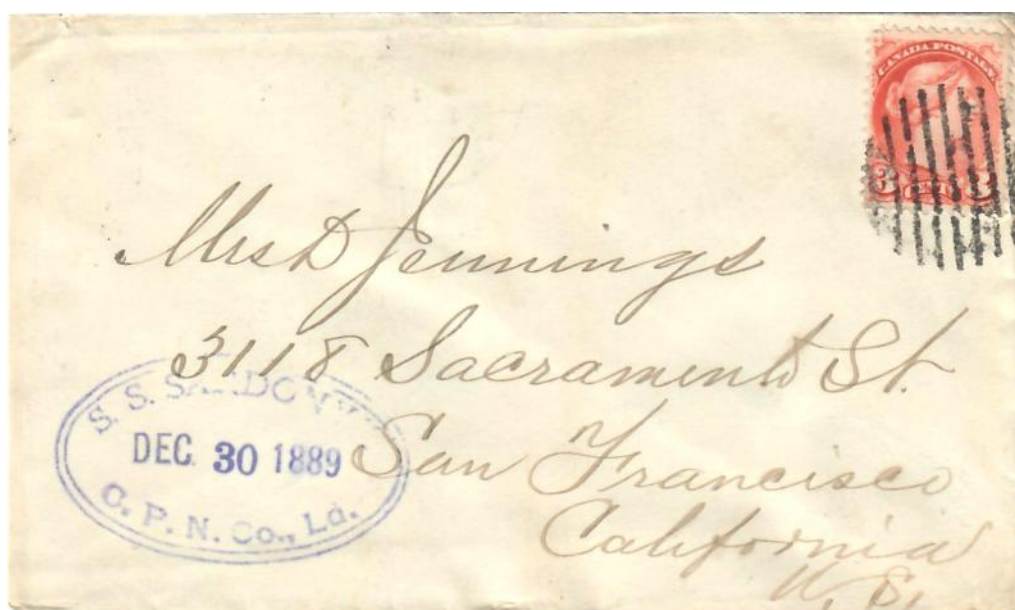 CANADA POSTAGE
3 CENTS 3
Mrs D Jennings
3118 Sacramento St.
San Francisco
California
U.S.
S. S. SARDONYX
DEC. 30 1889
C. P. N. Co., Ld.